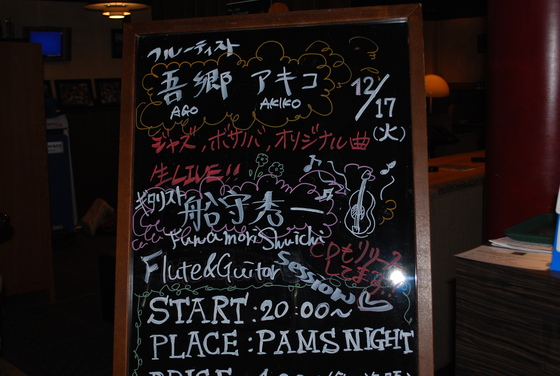 フルーティスト
吾郷 アキコ
AGO AKIKO
12/17
(火)
ジャズ,ボサノバ,オリジナル曲
生LIVE!!
ギタリスト
船守秀一
Funamori Shuichi
CDもリリース
してます
Flute&Guitar
Session
START:20:00~
PLACE:PAMS NIGHT